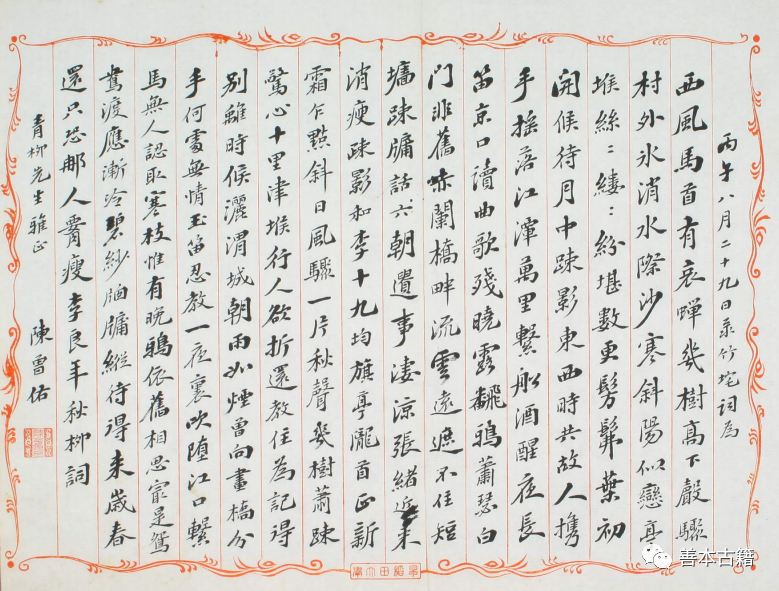 丙午八月二十九日录竹垞词為
西風馬首有哀蟬幾樹高下嚴驛
村外氷消水際沙寒斜陽似戀亭
堠絲〻縷〻紛堪數更髣髴葉初
開候待月中疎影東西時共故人攜
手搖落江潭萬里繫船酒醒夜長
笛京口讀曲歌殘曉露翻鴉蕭瑟白
門非舊赤闌橋畔流雲遠遮不住短
墻疎牖話六朝遺事淒涼張緒近來
消瘦疎影和李十九均旗亭隴首正新
霜乍點斜日風驟一片秋聲幾樹蕭疎
驚心十里津堠行人欲折還教住為記得
別離時候灑渭城朝雨如煙曾向畫橋分
手何處無情玉笛忍教一夜裏吹墮江口繫
馬無人認取寒枝惟有晚鴉依舊相思寔是鴛
鴦渡應漸冷碧紗牕牖縱待得來歲春
還只恐那人霄瘦李良年秋柳詞
青柳先生雅正 陳曾佑
善本古籍